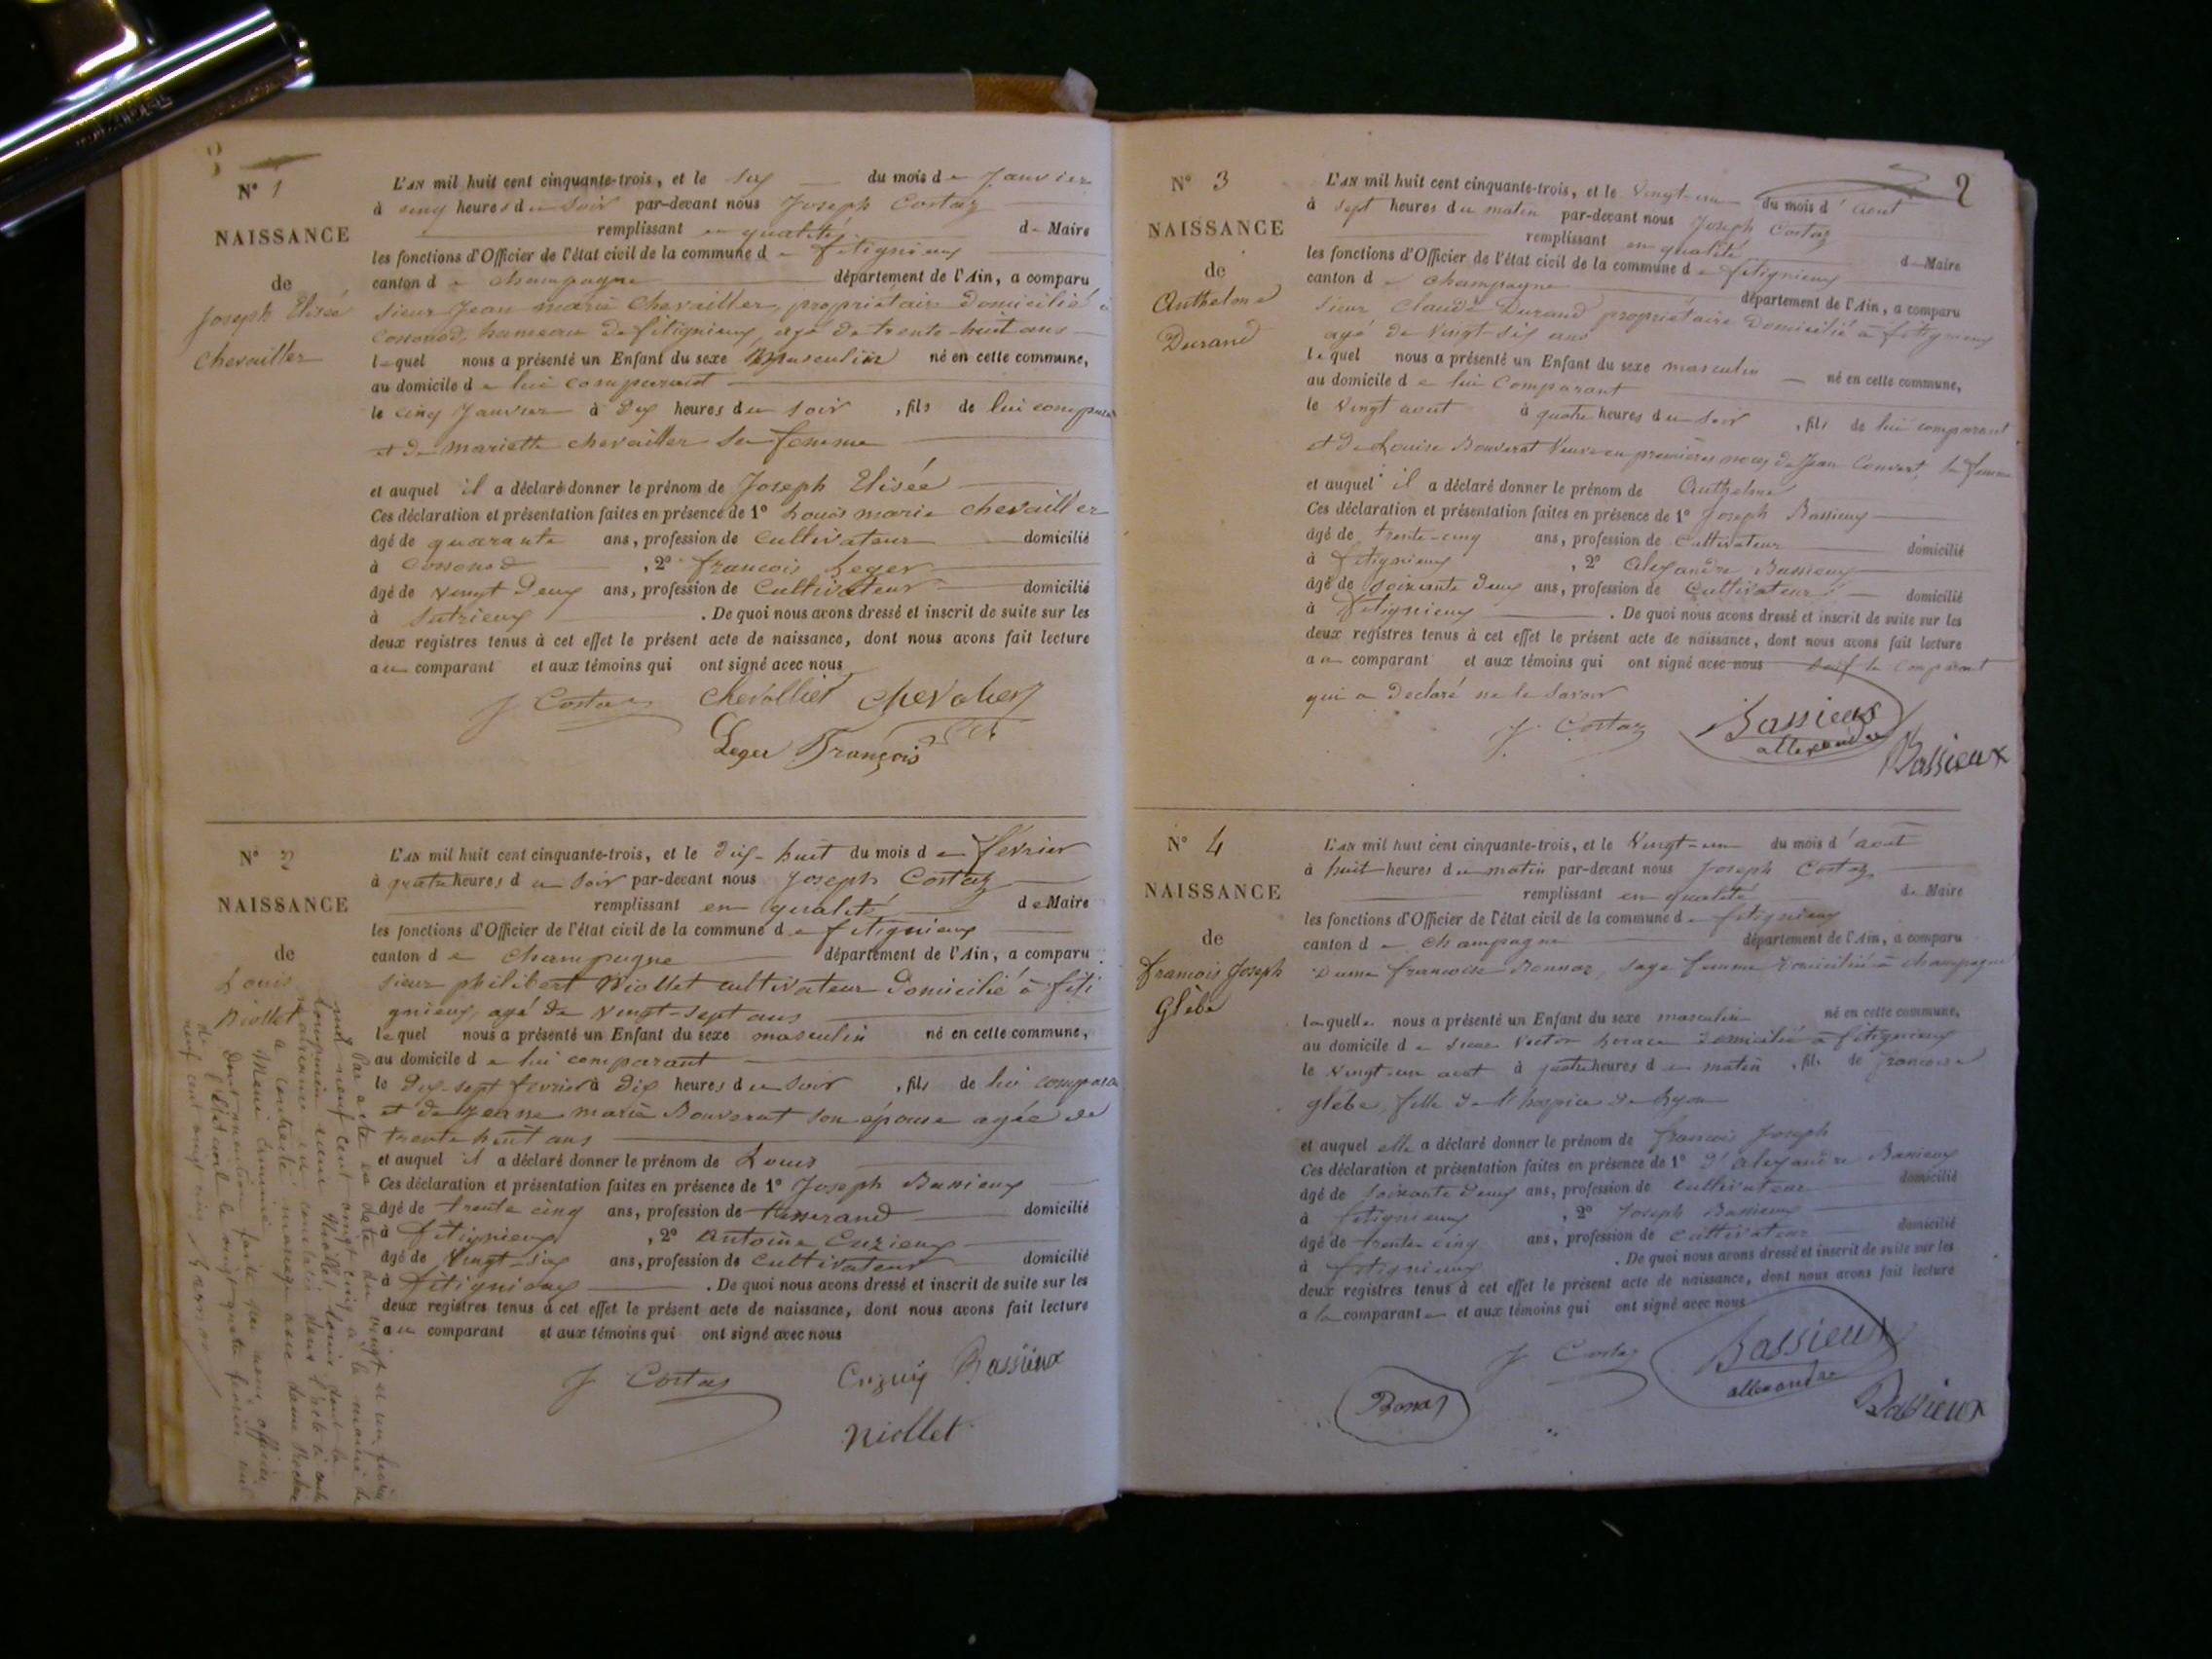 N° 1
NAISSANCE
de
Joseph Elisée
Chevailler
L'AN mil huit cent cinquante-trois, et le six du mois de Janvier
à cinq heures du soir par-devant nous Joseph Costaz
remplissant en qualité de Maire
les fonctions d'Officier de l'état civil de la commune de fitignieux
canton de champagne département de l'Ain, a comparu
sieur Jean marie Chevailler, propriétaire domicilié à
Cossonod, hameau de fitignieux, agé de trente huit ans
lequel nous a présenté un Enfant du sexe Masculin né en cette commune,
au domicile de lui comparant
le cinq Janvier à dix heures du soir, fils de lui comparant
et de mariette chevailler sa femme
et auquel il a déclaré donner le prénom de Joseph Elisée
Ces déclaration et présentation faites en présence de 1° Louis marie chevailler
âgé de quarante ans, profession de Cultivateur domicilié
à Cossonod, 2° francois Leger
âgé de vingt deux ans, profession de Cultivateur domicilié
à Sutrieux. De quoi nous avons dressé et inscrit de suite sur les
deux registres tenus à cet effet le présent acte de naissance, dont nous avons fait lecture
au comparant et aux témoins qui ont signé avec nous
J Costaz Chevallier chevalier
Leger François
N° 2
NAISSANCE
de
Louis
Niollet
L'AN mil huit cent cinquante-trois, et le dix-huit du mois de février
à quatre heures du soir par-devant nous Joseph Costaz
remplissant en qualité de Maire
les fonctions d'Officier de l'état civil de la commune de fitignieux
canton de Champagne département de l'Ain, a comparu
sieur philibert Niollet cultivateur domicilié à fiti
gnieux, agé de vingt-sept ans
lequel nous a présenté un Enfant du sexe masculin né en cette commune,
au domicile de lui comparant
le dix-sept fevrier à dix heures du soir, fils de lui comparant
et de Jeanne marie Bouverat son épouse agée de
trente huit ans
et auquel il a déclaré donner le prénom de Louis
Ces déclaration et présentation faites en présence de 1° Joseph Bassieux
âgé de trente cinq ans, profession de tisserand domicilié
à fitignieux, 2° Antoine Cuzieux
âgé de vingt-six ans, profession de Cultivateur domicilié
à fitignieux. De quoi nous avons dressé et inscrit de suite sur les
deux registres tenus à cet effet le présent acte de naissance, dont nous avons fait lecture
au comparant et aux témoins qui ont signé avec nous
J Costaz Bassieux
Niollet
Par acte en date du vingt et un février
mil neuf cent vingt cinq à la mairie de
sieur Niollet Louis dont la
naissance est constatée dans l'acte ci contre
a contracté mariage avec dame
Dont mention faite par nous officier
de l'Etat civil le vingt quatre février mil
neuf cent vingt cinq
2
N° 3
NAISSANCE
de
Anthelme
Durand
L'AN mil huit cent cinquante-trois, et le vingt-un du mois d'aout
à sept heures du matin par-devant nous Joseph Costaz
remplissant en qualité de Maire
les fonctions d'Officier de l'état civil de la commune de fitignieux
canton de champagne département de l'Ain, a comparu
sieur Claude Durand propriétaire domicilié à fitignieux
agé de vingt-six ans
lequel nous a présenté un Enfant du sexe masculin né en cette commune,
au domicile de lui Comparant
le vingt aout à quatre heures du soir, fils de lui comparant
et de Louise Bouverat Veuve en premières noces de Jean Convert, sa femme
et auquel il a déclaré donner le prénom de Anthelme
Ces déclaration et présentation faites en présence de 1° Joseph Bassieux
âgé de trente-cinq ans, profession de Cultivateur domicilié
à fitignieux, 2° Alexandre Bassieux
âgé de soixante deux ans, profession de Cultivateur domicilié
à fitignieux. De quoi nous avons dressé et inscrit de suite sur les
deux registres tenus à cet effet le présent acte de naissance, dont nous avons fait lecture
au comparant et aux témoins qui ont signé avec nous sauf le comparant
qui a declaré ne le savoir
J. Costaz Bassieux
allexandre
Bassieux
N° 4
NAISSANCE
de
francois Joseph
Glèbe
L'AN mil huit cent cinquante-trois, et le vingt-un du mois d'aout
à huit heures du matin par-devant nous Joseph Costaz
remplissant en qualité de Maire
les fonctions d'Officier de l'état civil de la commune de fitignieux
canton de champagne département de l'Ain, a comparu
Dame francoise Bonnaz, sage femme domiciliée à champagne
laquelle nous a présenté un Enfant du sexe masculin né en cette commune,
au domicile de sieur Victor domicilié à fitignieux
le vingt-un aout à quatre heures du matin, fils de francoise
glèbe, fille de l'hospice de Lyon
et auquel elle a déclaré donner le prénom de francois Joseph
Ces déclaration et présentation faites en présence de 1° d'alexandre Bassieux
âgé de soixante deux ans, profession de cultivateur domicilié
à fitignieux, 2° Joseph Bassieux
âgé de trente cinq ans, profession de cultivateur domicilié
à fitignieux. De quoi nous avons dressé et inscrit de suite sur les
deux registres tenus à cet effet le présent acte de naissance, dont nous avons fait lecture
a la comparante et aux témoins qui ont signé avec nous
J Costaz Bassieux
allexandre
Bassieux